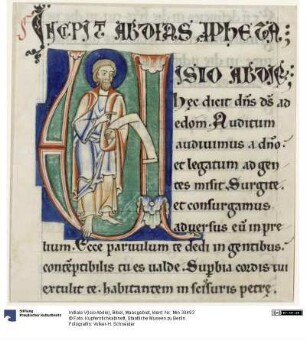 INCPIT ABDIAS APHETA;
VISIO ABDIE;
hec dicit dñs ds ad
edom. Auditum
audiuimus a dño.
et legatum ad gen
tes misit. Surgite.
et consurgamus
aduersus eū in pre
lium. Ecce paruulum te dedi in gentibus.
contēptibilis tu es ualde. Supbia cordis tui
extulit te. habitantem in scissuris petre.
Initiale V(isio Abdie), Bibel, Ident. Nr. Min
©Foto: Kupferstichkabinett, Staatliche Museen zu Berlin
Fotograf/in: Volker-H. Schneider
Stiftung
Preußischer Kulturbesitz